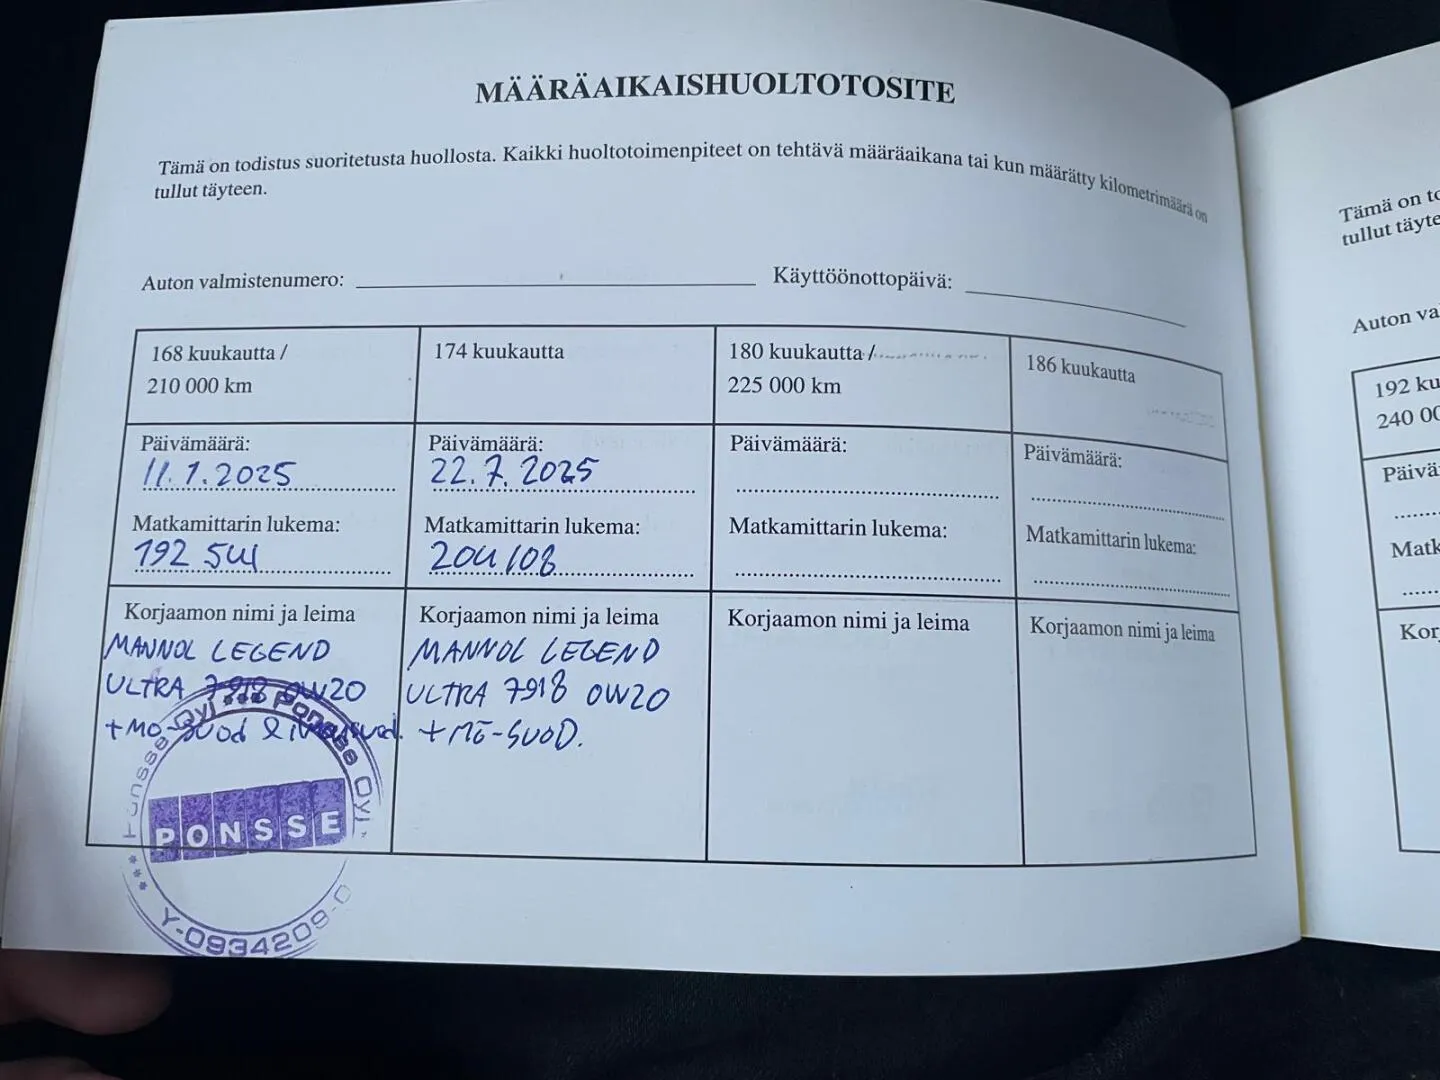 MÄÄRÄAIKAISHUOLTOTOSITE
Tämä on todistus suoritetusta huollosta. Kaikki huoltotoimenpiteet on tehtävä määräaikana tai kun määrätty kilometrimäärä on
tullut täyteen.
Auton valmistenumero:
Käyttöönottopäivä:
168 kuukautta /
210 000 km
174 kuukautta
180 kuukautta /
225 000 km
186 kuukautta
Päivämäärä:
11.1.2025
Päivämäärä:
22.7.2025
Päivämäärä:
Päivämäärä:
Matkamittarin lukema:
192 541
Matkamittarin lukema:
204 108
Matkamittarin lukema:
Matkamittarin lukema:
Korjaamon nimi ja leima
MANNOL LEGEND
ULTRA 7918 0W20
+MÖ-SUOD &
Korjaamon nimi ja leima
MANNOL LEGEND
ULTRA 7918 0W20
+MÖ-SUOD.
Korjaamon nimi ja leima
Korjaamon nimi ja leima
Ponsse Oyj *** Ponsse Oyj
PONSSE
Y-0934209-0
Tämä on to
tullut täyte
Auton va
192 ku
240 00
Päivä
Matk
Kor